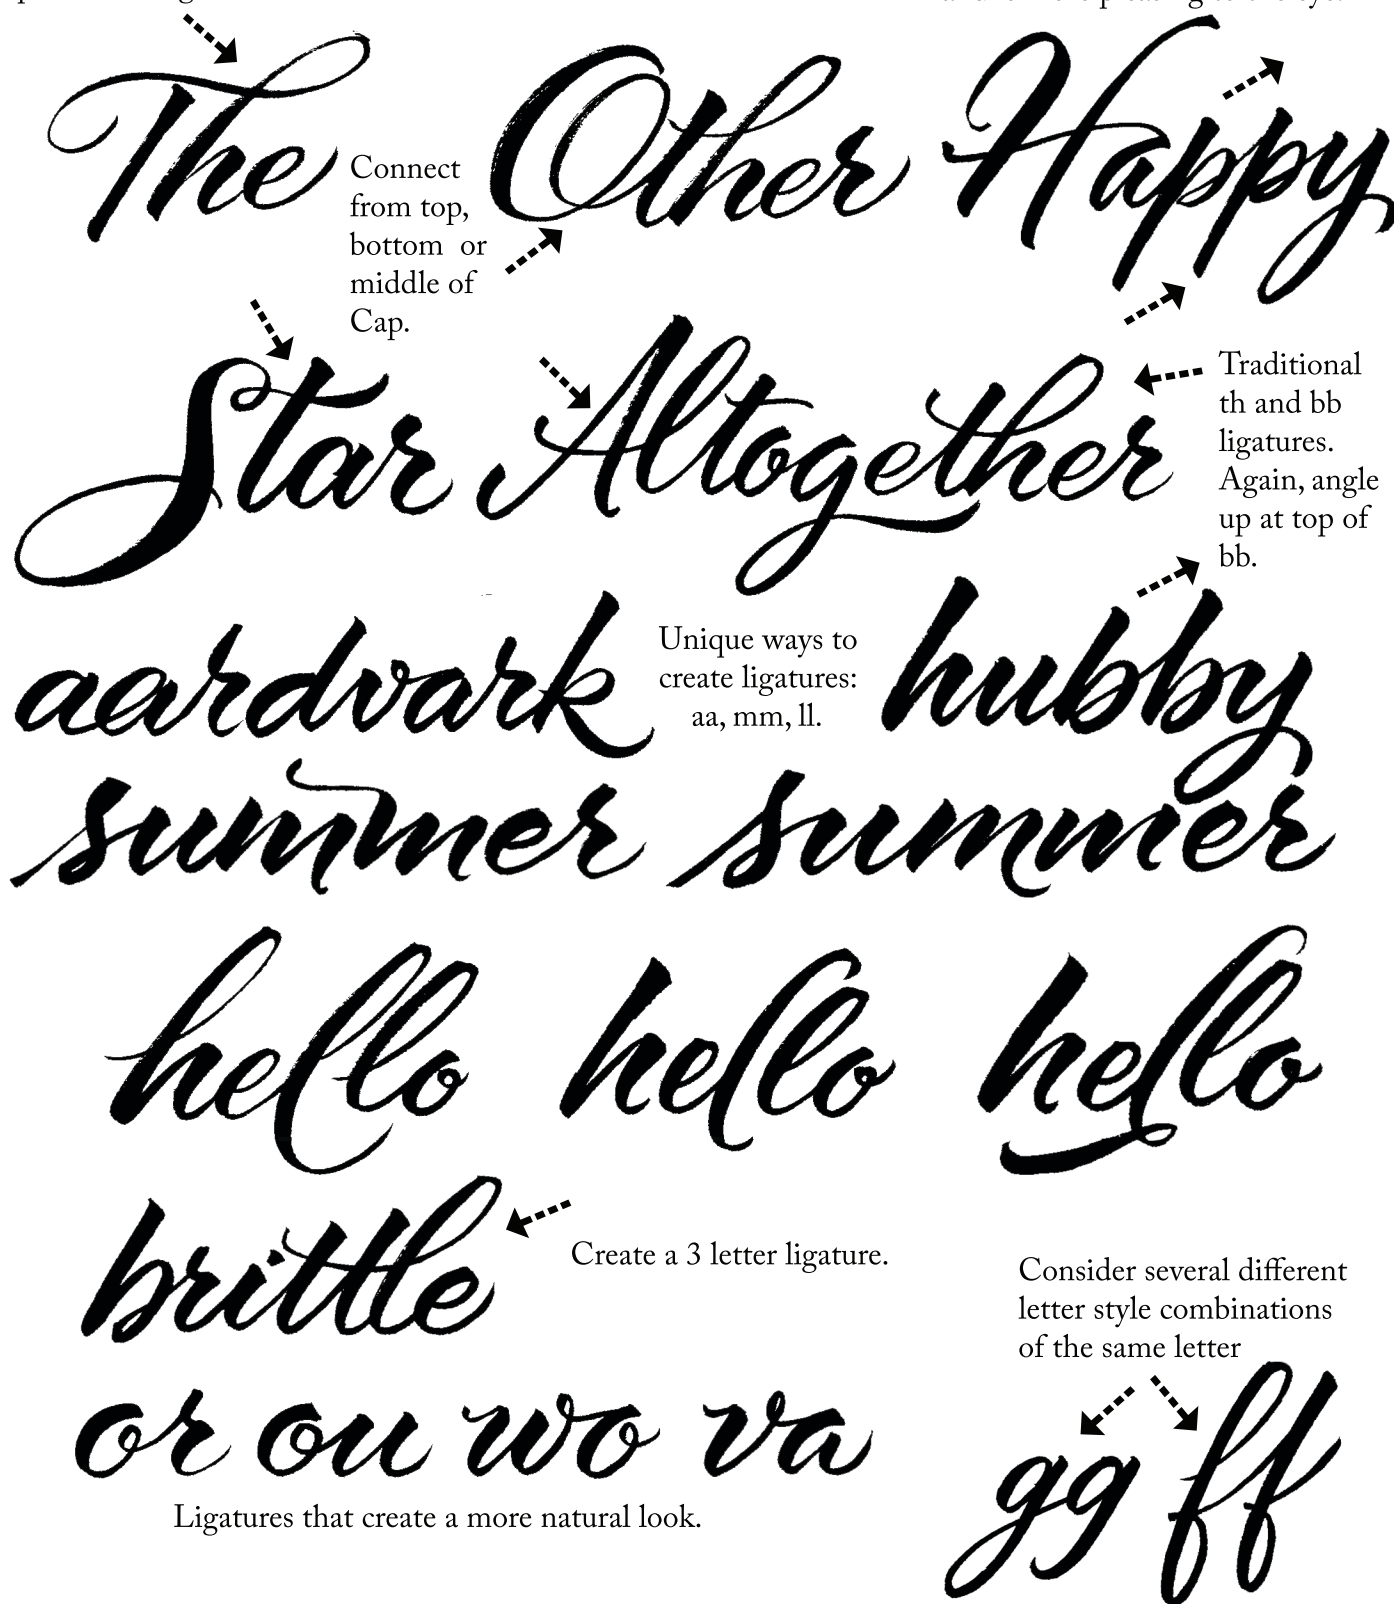 The Other Happy
Connect
from top,
bottom or
middle of
Cap.
Star Altogether
Traditional
th and bb
ligatures.
Again, angle
up at top of
bb.
aardvark
Unique ways to
create ligatures:
aa, mm, ll.
hubby
summer summer
hello hello hello
brittle
Create a 3 letter ligature.
Consider several different
letter style combinations
of the same letter
or ou wo va
gg ff
Ligatures that create a more natural look.